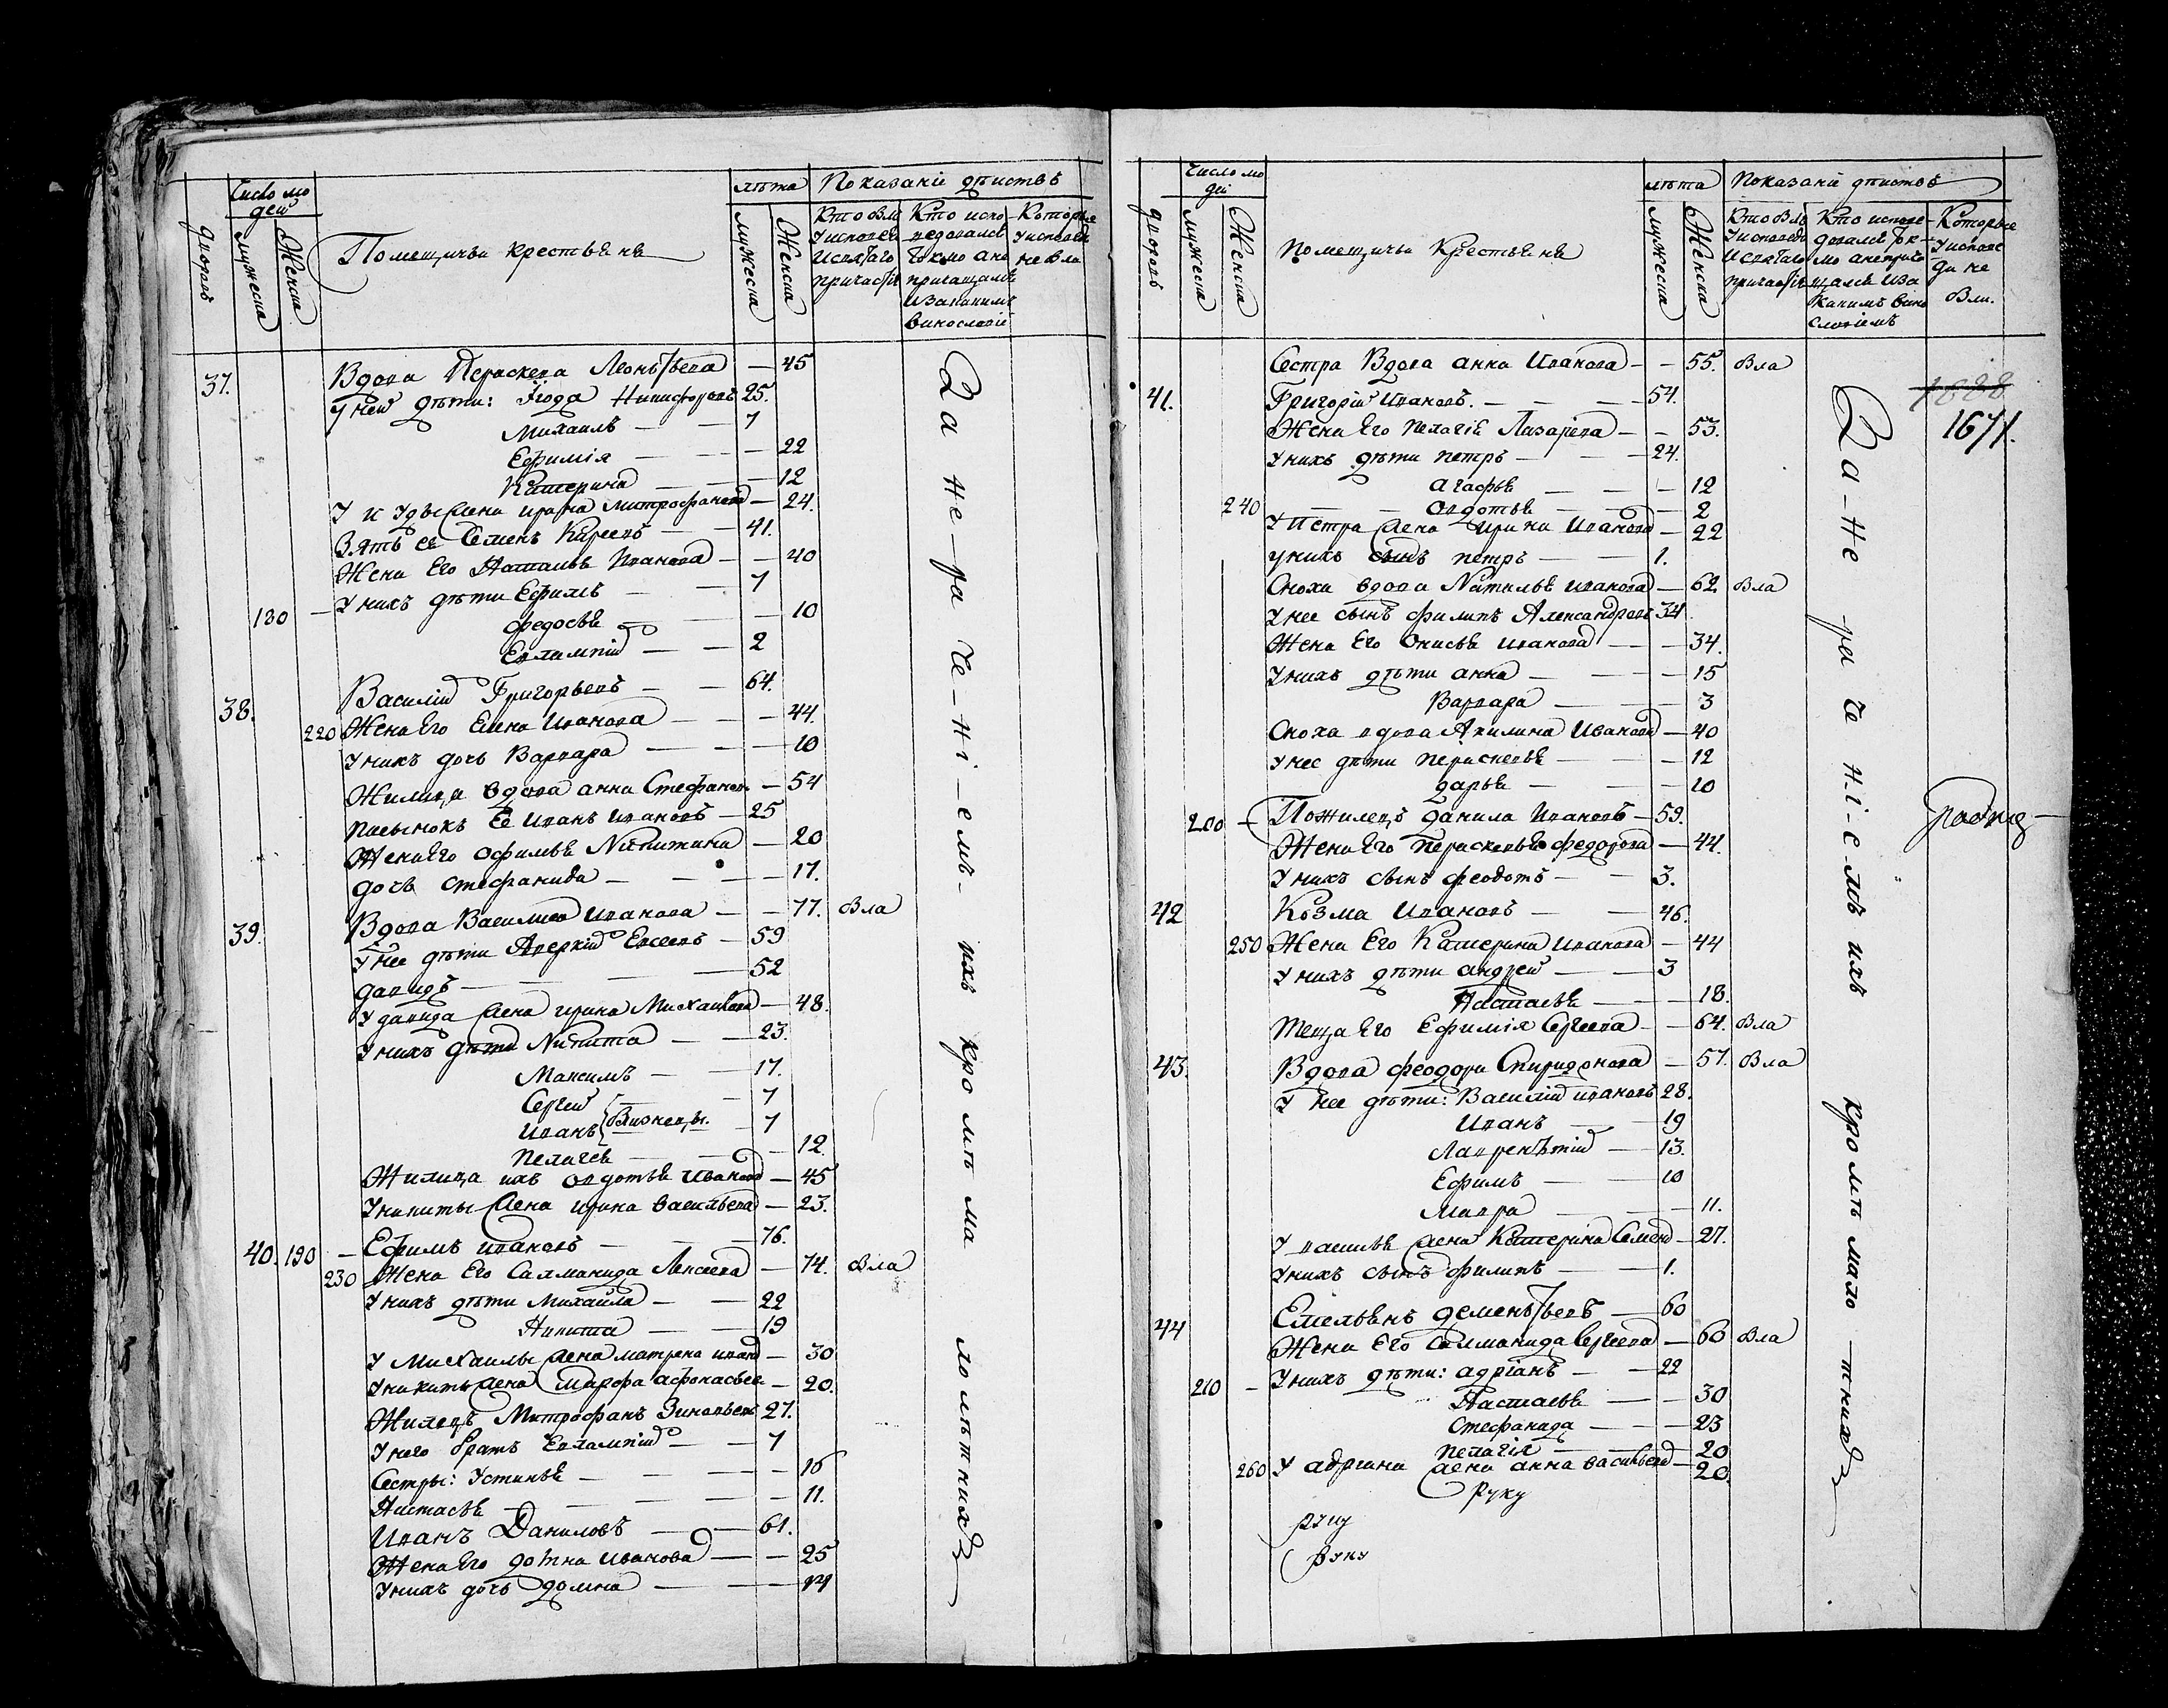 Число лю
дей
лѣта Показаніе дѣиствъ
дворовъ мужеска Женска
Помещичьи крестьяня
мужеска Женска
Кто был
У исповеди
И святаго
причастія
Кто испо
ведовался
токмо а не
причащался
и за каким
винословіем
Которые
у исповеди
не были
37. Вдова Пераскева Леонтьева — 45
У ней дѣти: Июда Никифоровъ 25.
Михаилъ — — 7
Ефимія — — — 22
Катерина — — 12
У Июды жена ирина митрофанова — 24.
Зять ее Семенъ Киреевъ — — 41.
Жена Его Наталья Иванова — — 40
180 — У нихъ дѣти Ефимъ — — 7
федосья — — — 10
Евлампій — — 2
38. Василій Григорьевъ — — 64.
220 Жена Его Елена Иванова — — — 44.
У нихъ дочь Варвара — — — 10
Жилица вдова анна Стефанов. — 54
пасынокъ Ее Иванъ Ивановъ — 25
Жена Его Офимья Никитина — 20
дочь стефанида — — — 17.
39. Вдова Василиса Иванова — — 77. Была
У нее дѣти Аверкій Евсеевъ — 59
давидъ — — — — 52
У давида жена ирина Михаилова — 48.
У нихъ дѣти Никита — — 23.
Максимъ — — 17.
Сергей — — 7
Иванъ Близнецы. — 7
Пелагея — — — 12.
Жилица ихъ овдотья Иванова — 45
У никиты жена ирина васильева — 23.
40. 190 — Ефимъ ивановъ — — — 76.
230 Жена Его Саломанида Алексеева — 74. Была
У нихъ дѣти Михаила — — 22
Никита — — 19
У Михаилы жена матрена иван — 30
У никиты жена Марфа афонасьев — 20.
Жилецъ Митрофанъ Зиновьевъ 27.
У него братъ Евлампій — — 7
Сестры: Устинья — — — — 16
Настасья — — — — 11.
Иванъ Даниловъ — — 61.
Жена Его домна иванова — — 25
У нихъ дочь домна — — — 14
За не ра че ні емъ ихъ кро мѣ ма ло лѣт нихъ
Число лю
дей
лѣта Показаніе дѣиствъ
дворовъ мужеска Женска
Помещичьи Крестьяня
мужеска Женска
Кто был
У исповеди
И святаго
причастія
Кто испове
довался ток
мо а не прича
щался и за
каким вино
словіемъ
Которые
у испове
ди не
были.
1671.
Сестра Вдова анна Иванова — — 55. Была
41. Григорій Ивановъ. — — — 54.
Жена Его пелагія Лазарева — — 53.
У нихъ дѣти петръ — — — 24.
агафья — — — 12
240 овдотья — — — 2
У петра жена ирина Иванова — 22
у нихъ сынъ петръ — — 1.
Сноха вдова Наталья иванова — 62. Была
У нее сынъ филипъ Александровъ 34.
Жена Его Онисья иванова — — 34.
У нихъ дѣти анна — — — 15
Варвара — — — 3
Сноха вдова Акилина Иванова — 40
У нее дѣти пераскевья — — — 12
дарья — — — 10
200 — Пожилецъ данила Ивановъ — 59.
Жена Его Пераскевья федорова — 44.
У нихъ сынъ феодотъ — — 3.
42 Козма Ивановъ — — 46.
250 Жена Его Катерина иванова — 44
У нихъ дѣти андрей — — 3
Настасья — — — 18.
теща Его Ефимія Сергеева — — 64. Была
43. Вдова феодора Спиридонова — 57. Была
У нее дѣти: Василій ивановъ 28.
Иванъ — — 19
Лаврентій — 13.
Ефимъ — — 10
Мавра — — — 11.
У василья жена Катерина Семено — 27.
У нихъ сынъ филипъ — — 1.
44 Емельянъ дементьевъ — 60
Жена Его Саломанида Сергеева — 60 Была
210 — У нихъ дѣти: адріанъ — — 22
Настасья — — 30
Стефанида — — — 23
пелагія — — — 20
260 У адриана жена анна васильева — 20.
Руку
руку
руку
За не ра че ні е мъ ихъ кро мѣ мало тнихъ